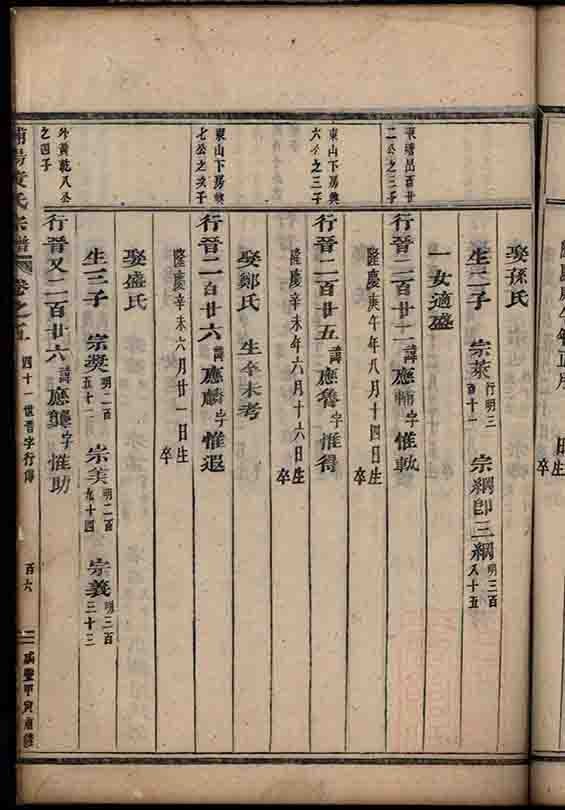 娶孫氏
生二子 宗萊行明三百十一 宗綱即三綱明三百八十五
一女適盛
二公之三子
行晉二百廿二諱應輔字惟軾
隆慶庚午年八月十四日生
卒
東山下房興
六公之三子
行晉二百廿五諱應魯字惟得
隆慶辛未年六月十六日生
卒
娶鄭氏 生卒未考
東山下房興
七公之次子
行晉二百廿六諱應麟字惟遐
隆慶辛未六月廿一日生
卒
娶盛氏
生三子 宗獎明二百五十二 宗美明二百九十四 宗義明三百三十三
外黃乾八公
之四子
行晉又二百廿六諱應龔字惟助
氏宗譜 卷之五 四十一世晉字行傳 百六 咸豐甲寅重修